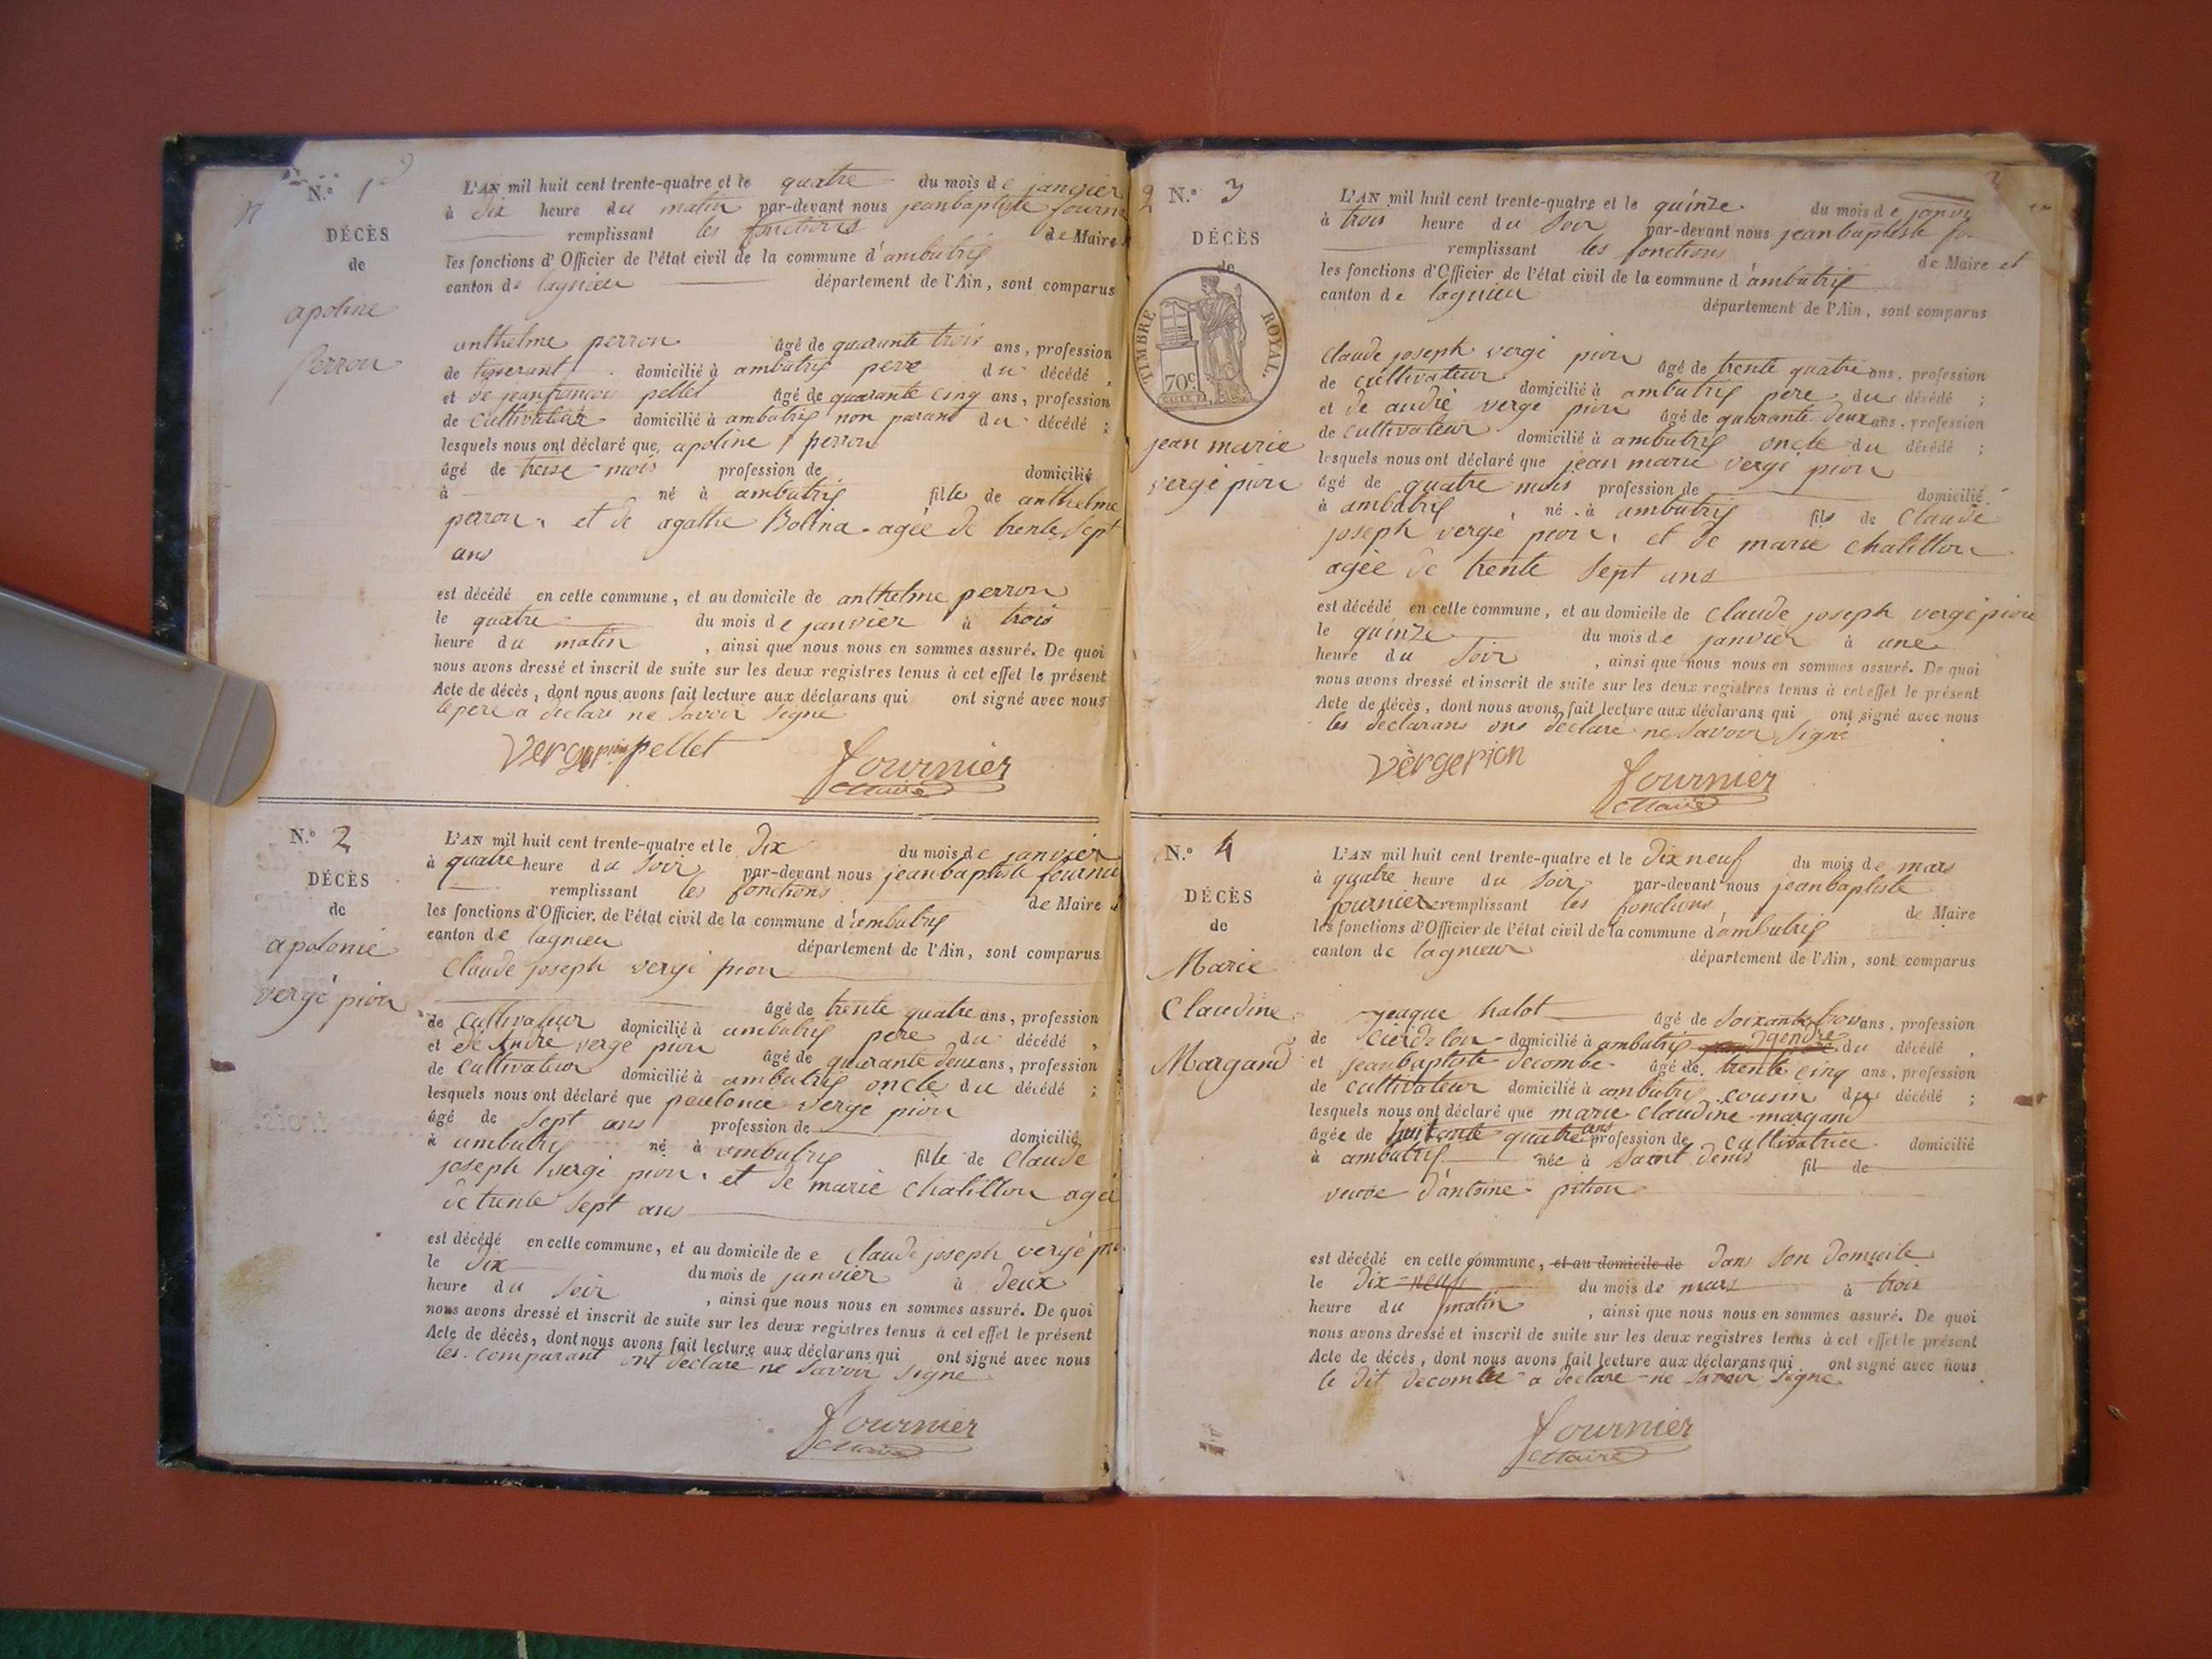 N.º 1
DÉCÈS
de
apoline
perron
L'AN mil huit cent trente-quatre et le quatre du mois de janvier
à dix heure du matin par-devant nous jeanbaptiste
remplissant les fonctions de Maire
les fonctions d'Officier de l'état civil de la commune d'ambutrix
canton de lagnieu département de l'Ain, sont comparus
anthelme perron âgé de quarante trois ans, profession
de tisserant domicilié à ambutrix pere du décédé,
et de jeanfrancois pellet âgé de quarante cinq ans, profession
de cultivateur domicilié à ambutrix non parant du décédé ;
lesquels nous ont déclaré que apoline perron
âgé de treise mois profession de domicilié
à né à ambutrix fille de anthelme
perron et de agathe Bolina agée de trente sept
ans
est décédé en cette commune, et au domicile de anthelme perron
le quatre du mois de janvier à trois
heure du matin, ainsi que nous nous en sommes assuré. De quoi
nous avons dressé et inscrit de suite sur les deux registres tenus à cet effet le présent
Acte de décès, dont nous avons fait lecture aux déclarans qui ont signé avec nous
le pere a declare ne savoir signe
pellet
fournier
Maire
N.º 2
DÉCÈS
de
apolonie
vergé pion
L'AN mil huit cent trente-quatre et le dix du mois de janvier
à quatre heure du soir par-devant nous jeanbaptiste
remplissant les fonctions de Maire
les fonctions d'Officier de l'état civil de la commune d'ambutrix
canton de lagnieu département de l'Ain, sont comparus
Claude joseph vergé pion
âgé de trente quatre ans, profession
de cultivateur domicilié à ambutrix pere du décédé,
et de André vergé pion âgé de quarante deux ans, profession
de cultivateur domicilié à ambutrix oncle du décédé ;
lesquels nous ont déclaré que vergé pion
âgé de sept ans profession de domicilié
à ambutrix né à ambutrix fille de Claude
joseph vergé pion et de marie chatillon agée
de trente sept ans
est décédé en cette commune, et au domicile de Claude joseph vergé
le dix du mois de janvier à deux
heure du soir, ainsi que nous nous en sommes assuré. De quoi
nous avons dressé et inscrit de suite sur les deux registres tenus à cet effet le présent
Acte de décès, dont nous avons fait lecture aux déclarans qui ont signé avec nous
les comparant ont declare ne savoir signe
fournier
Maire
N.º 3
DÉCÈS
de
TIMBRE ROYAL.
70c
jean marie
vergé pion
L'AN mil huit cent trente-quatre et le quinze du mois de
à trois heure du soir par-devant nous jeanbaptiste
remplissant les fonctions de Maire et
les fonctions d'Officier de l'état civil de la commune d'ambutrix
canton de lagnieu
département de l'Ain, sont comparus
Claude joseph vergé pion âgé de trente quatre ans, profession
de cultivateur domicilié à ambutrix pere du décédé ;
et de andré vergé pion âgé de quarante deux ans, profession
de cultivateur domicilié à ambutrix oncle du décédé ;
lesquels nous ont déclaré que jean marie vergé pion
âgé de quatre mois profession de domicilié
à ambutrix, né à ambutrix fils de Claude
joseph vergé pion, et de marie chatillon
agée de trente sept ans
est décédé en cette commune, et au domicile de Claude joseph vergé pion
le quinze du mois de janvier à une
heure du soir, ainsi que nous nous en sommes assuré. De quoi
nous avons dressé et inscrit de suite sur les deux registres tenus à cet effet le présent
Acte de décès, dont nous avons fait lecture aux déclarans qui ont signé avec nous
les declarans ons declare ne savoir signé
vergepion
fournier
Maire
N.º 4
DÉCÈS
de
Marie
Claudine
Margand
L'AN mil huit cent trente-quatre et le dix neuf du mois de mars
à quatre heure du soir par-devant nous jeanbaptiste
fournier remplissant les fonctions de Maire
les fonctions d'Officier de l'état civil de la commune d'ambutrix
canton de lagnieur département de l'Ain, sont comparus
jeaque halot âgé de soixante trois ans, profession
de domicilié à ambutrix gendre du décédé,
et jeanbaptiste decombe âgé de trente cinq ans, profession
de cultivateur domicilié à ambutrix cousin du décédé ;
lesquels nous ont déclaré que marie claudine margand
âgée de quatre ans profession de cultivatrice domicilié
à ambutrix née à saint denis fil de
veuve d'antoine pition
est décédé en cette commune, et au domicile de dans son domicile
le dix neuf du mois de mars à trois
heure du matin, ainsi que nous nous en sommes assuré. De quoi
nous avons dressé et inscrit de suite sur les deux registres tenus à cet effet le présent
Acte de décès, dont nous avons fait lecture aux déclarans qui ont signé avec nous
le dit decombe a declare ne savoir signe
fournier
Maire